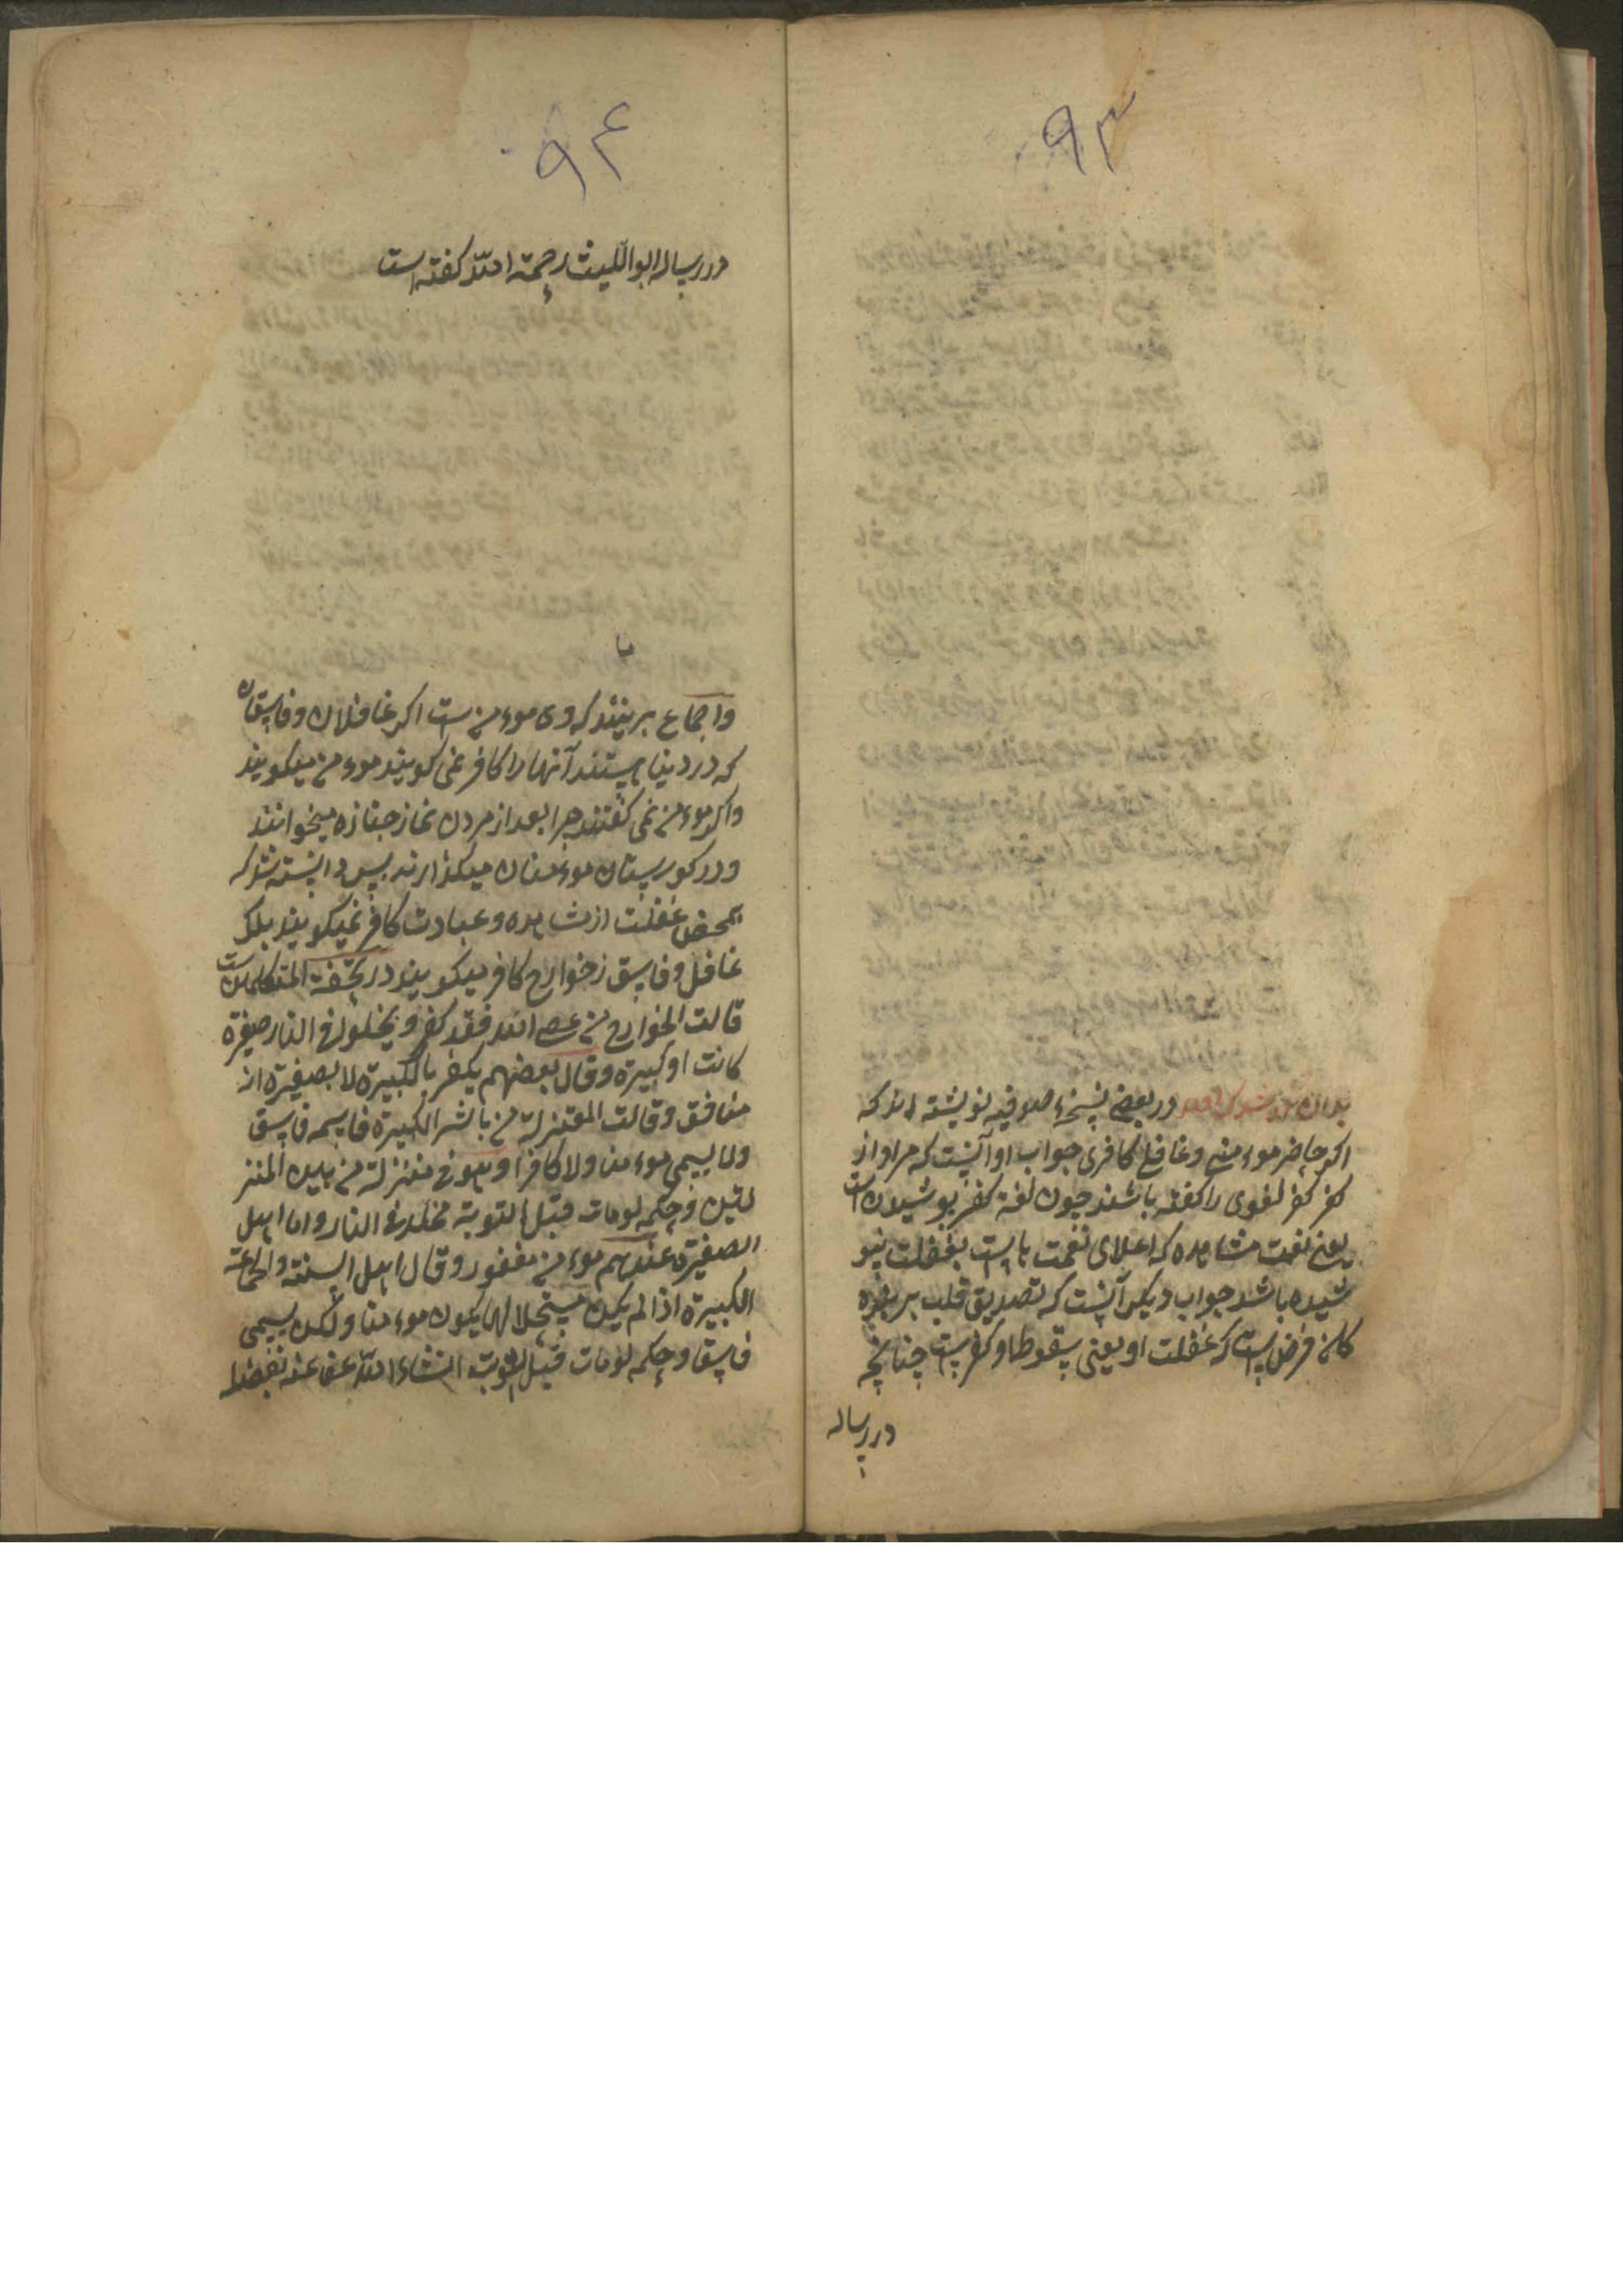 ۹۳
بدان در بعضی نسخهٔ صوفیه نویشته اند که
اکر حاضر موءمنی وغافلی کافری جواب او آنست که مراد از
کفر کفر لغوی را کفته باشند چون لغة کفر پوشیدن است
یعنی نعمت مشاهده که اعلای نعمت هاست بغفلت پو
شیده باشد جواب دیکر آنست که تصدیق قلب بر
کلان فرض است که غفلت او یعنی سقوط او کفرست چنانچه
در رساله
۹۴
در رساله ابو اللیث رحمة الله کفته است
واجماع برینند که وی موءمن ست اکر غافلان و فاسقان
که در دنیا هستند آنها را کافر نمی کویند موءمن میکویند
واکر موءمن نمی کفتند چرا بعد از مردن نماز جنازه میخوانند
ودر کورستان موءمنان میکذارند پس دانسته شد که
بمحض غفلت از مشاهده وعبادت کافر نمیکویند بلکه
غافل وفاسق را خوارج کافر میکویند در تحفة المتکلمین است
قالت الخوارج من عصی الله فقد کفر و یخلد فی النار صغیرة
کانت او کبیرة وقال بعضهم یکفر بالکبیرة لا بصغیرة انه
منافق وقالت المعتزلة من باشر الکبیرة فاسمه فاسق
ولا یسمی موءمنا ولا کافرا وهو فی منزلة من بین المنز
لتین وحکمه لو مات قبل التوبة مخلد فی النار واما اهل
الصغیرة عندهم موءمن مغفور وقال اهل السنة والجماعة
الکبیرة اذا لم یکن مستحلا لها یکون موءمنا ولکن یسمی
فاسقا وحکمه لو مات قبل التوبة انشاء الله عفا عنه بفضله